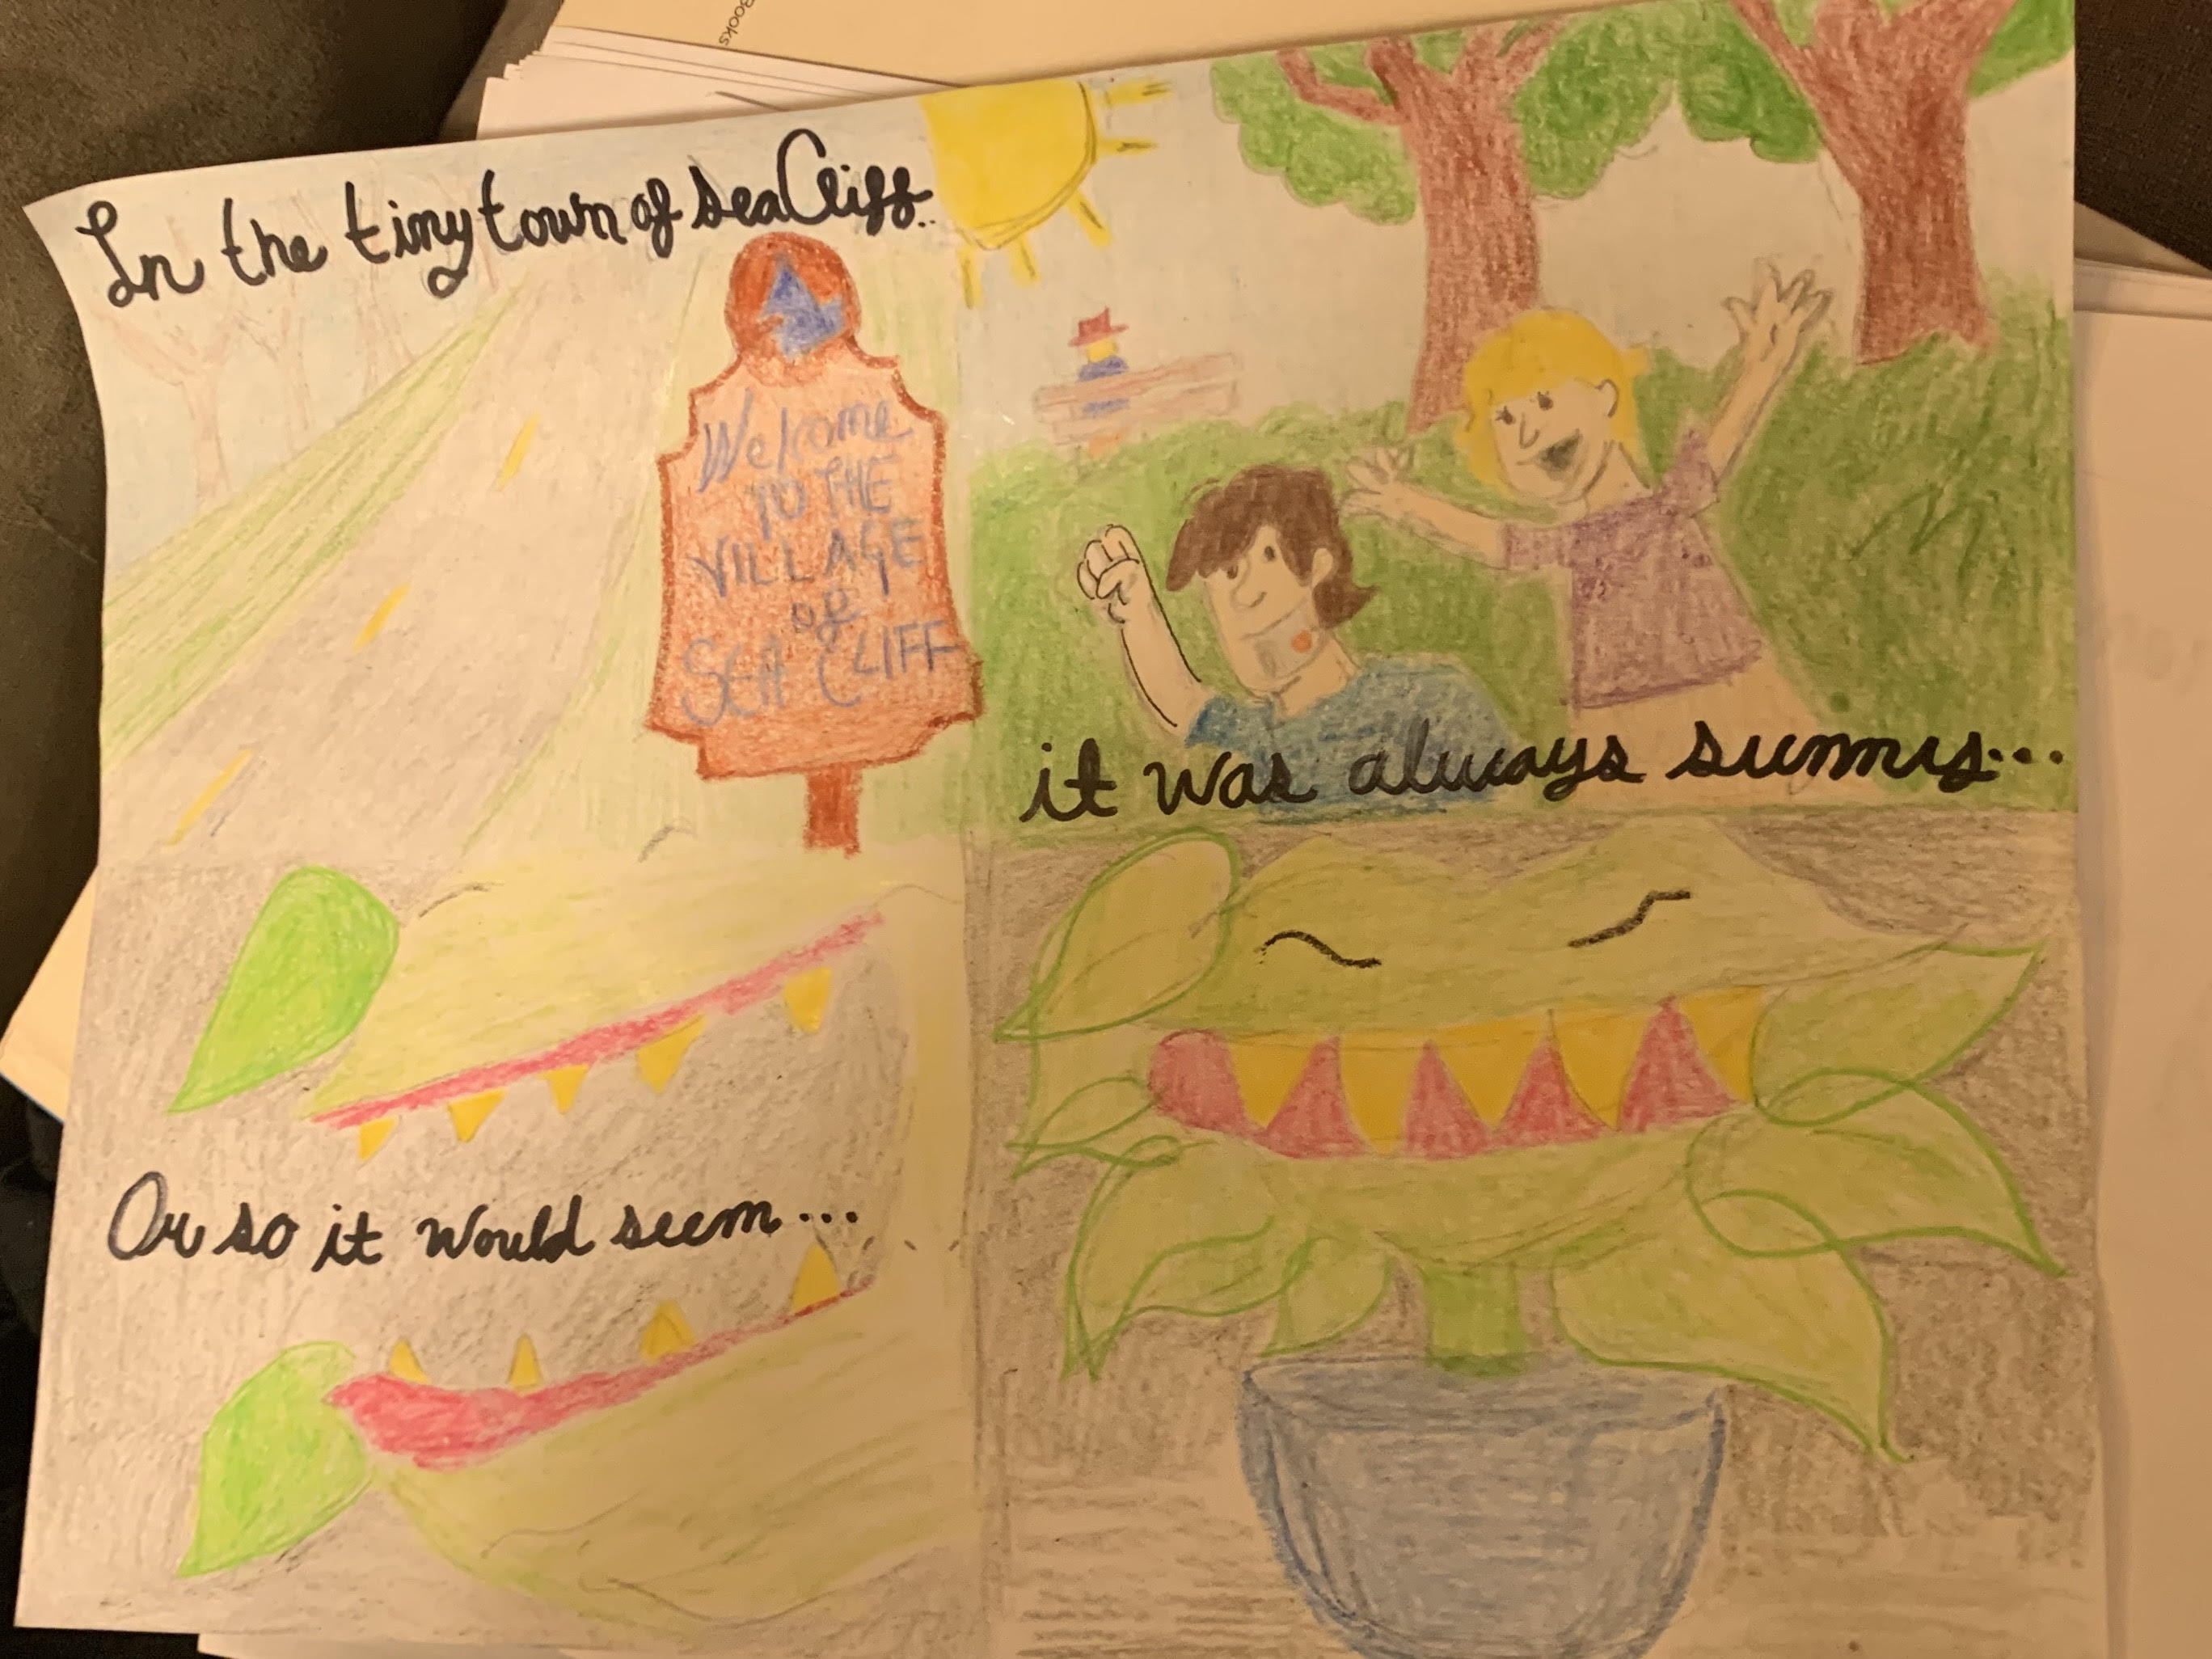 Books
In the tiny town of sea Cliff..
Welcome
TO THE
VILLAGE
of
SEA CLIFF
it was always sunny...
Or so it would seem...